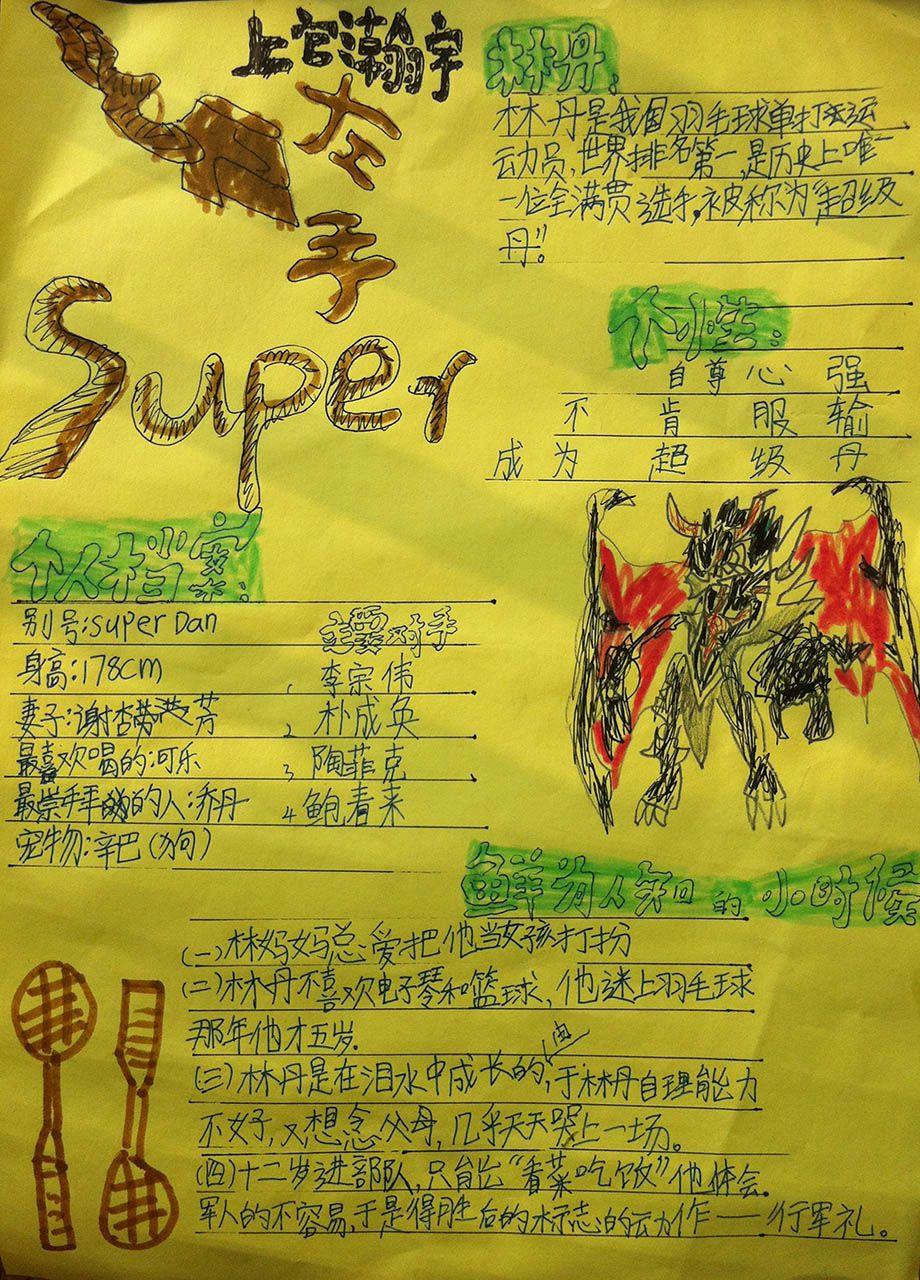 上官瀚宇
左
手
Super
林丹:
林丹是我国羽毛球单打运
动员,世界排名第一,是历史上唯
一位全满贯选手,被称为“超级
丹”。
个性:
自尊心强
不肯服输
成为超级丹
个人档案:
别号:super Dan
身高:178cm
妻子:谢杏芳
最喜欢喝的:可乐
最崇拜的人:乔丹
宠物:辛巴(狗)
主要对手
1、李宗伟
2、朴成奂
3、陶菲克
4、鲍春来
鲜为人知的小时候
(一)林妈妈总爱把他当女孩打扮
(二)林丹不喜欢电子琴和篮球,他迷上羽毛球
那年他才五岁.
(三)林丹是在泪水中成长的,由于林丹自理能力
不好,又想念父母,几乎天天哭上一场。
(四)十二岁进部队,只能"看菜吃饭"他体会
军人的不容易,于是得胜后的标志的动作——行军礼。